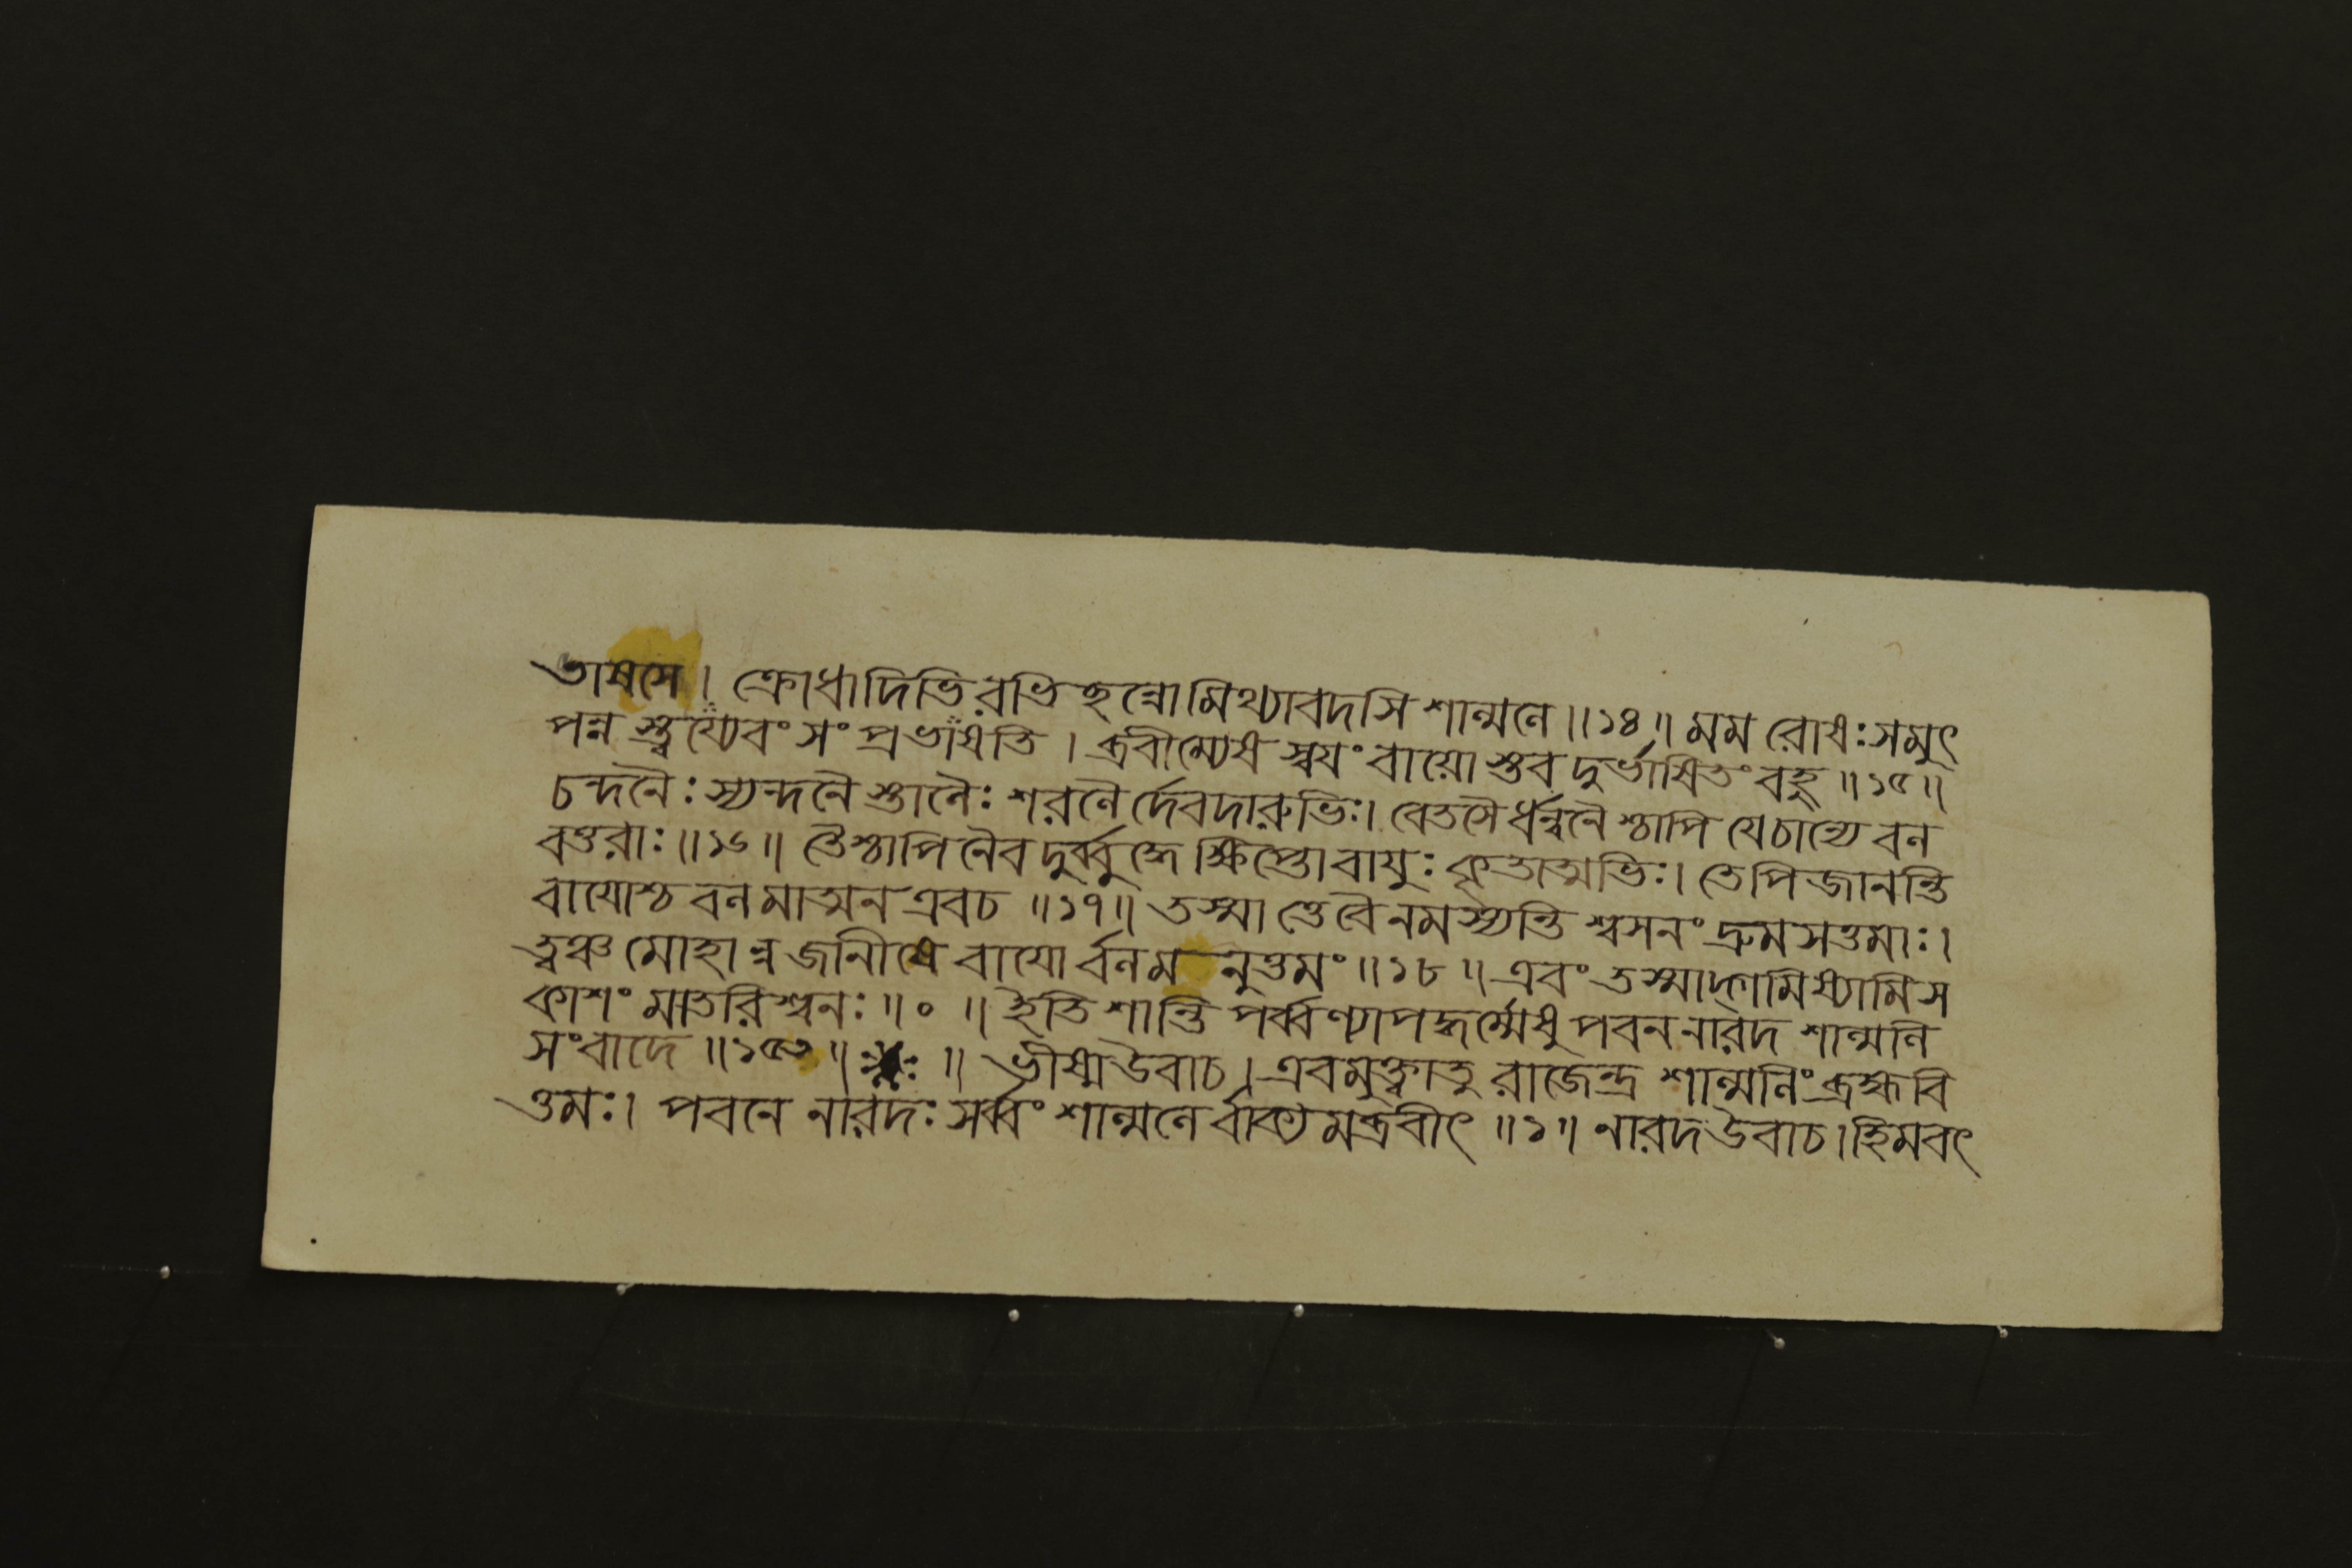 ভাষসে। ক্রোধাদিভিরভিছন্নোমিথ্যাবদসি শাল্মলে॥১৪॥ মম রোষঃসমুৎ
পন্নস্ত্বয্যেবং সংপ্রভাষতি। ব্রবীম্যেষ স্বযং বায়োস্তব দুর্ভাষিতং বহু॥১৫॥
চন্দনৈঃ স্যন্দনৈস্তালৈঃ শরলৈর্দেবদারুভিঃ। বেতসৈর্ধন্বনৈশ্চাপি যেচান্যে বল
বত্তরাঃ॥১৬॥ তৈশ্চাপি নৈব দুর্ব্বুদ্ধে ক্ষিপ্তো বাযুঃ কৃতাত্মভিঃ। তেপি জানন্তি
বাযোশ্চ বলমাত্মন এবচ॥১৭॥ তস্মাত্তেবৈ নমস্যন্তি শ্বসনং দ্রুমসত্তমাঃ।
ত্বঞ্চ মোহান্ন জানীষে বাযোর্বলম নুত্তমং॥১৮॥ এবং তস্মাদ্গমিষ্যামি স
কাশং মাতরিশ্বনঃ॥০॥ ইতি শান্তিপর্ব্বণ্যাপদ্ধর্ম্মেষু পবন নারদ শাল্মলি
সংবাদে॥১৫৩॥ ॥ ভীষ্ম উবাচ। এবমুক্ত্বাতু রাজেন্দ্র শাল্মলিং ব্রহ্মবি
ত্তমঃ। পবনে নারদঃ সর্ব্বং শাল্মলের্বাক্য মব্রবীৎ॥১॥ নারদ উবাচ। হিমবৎ